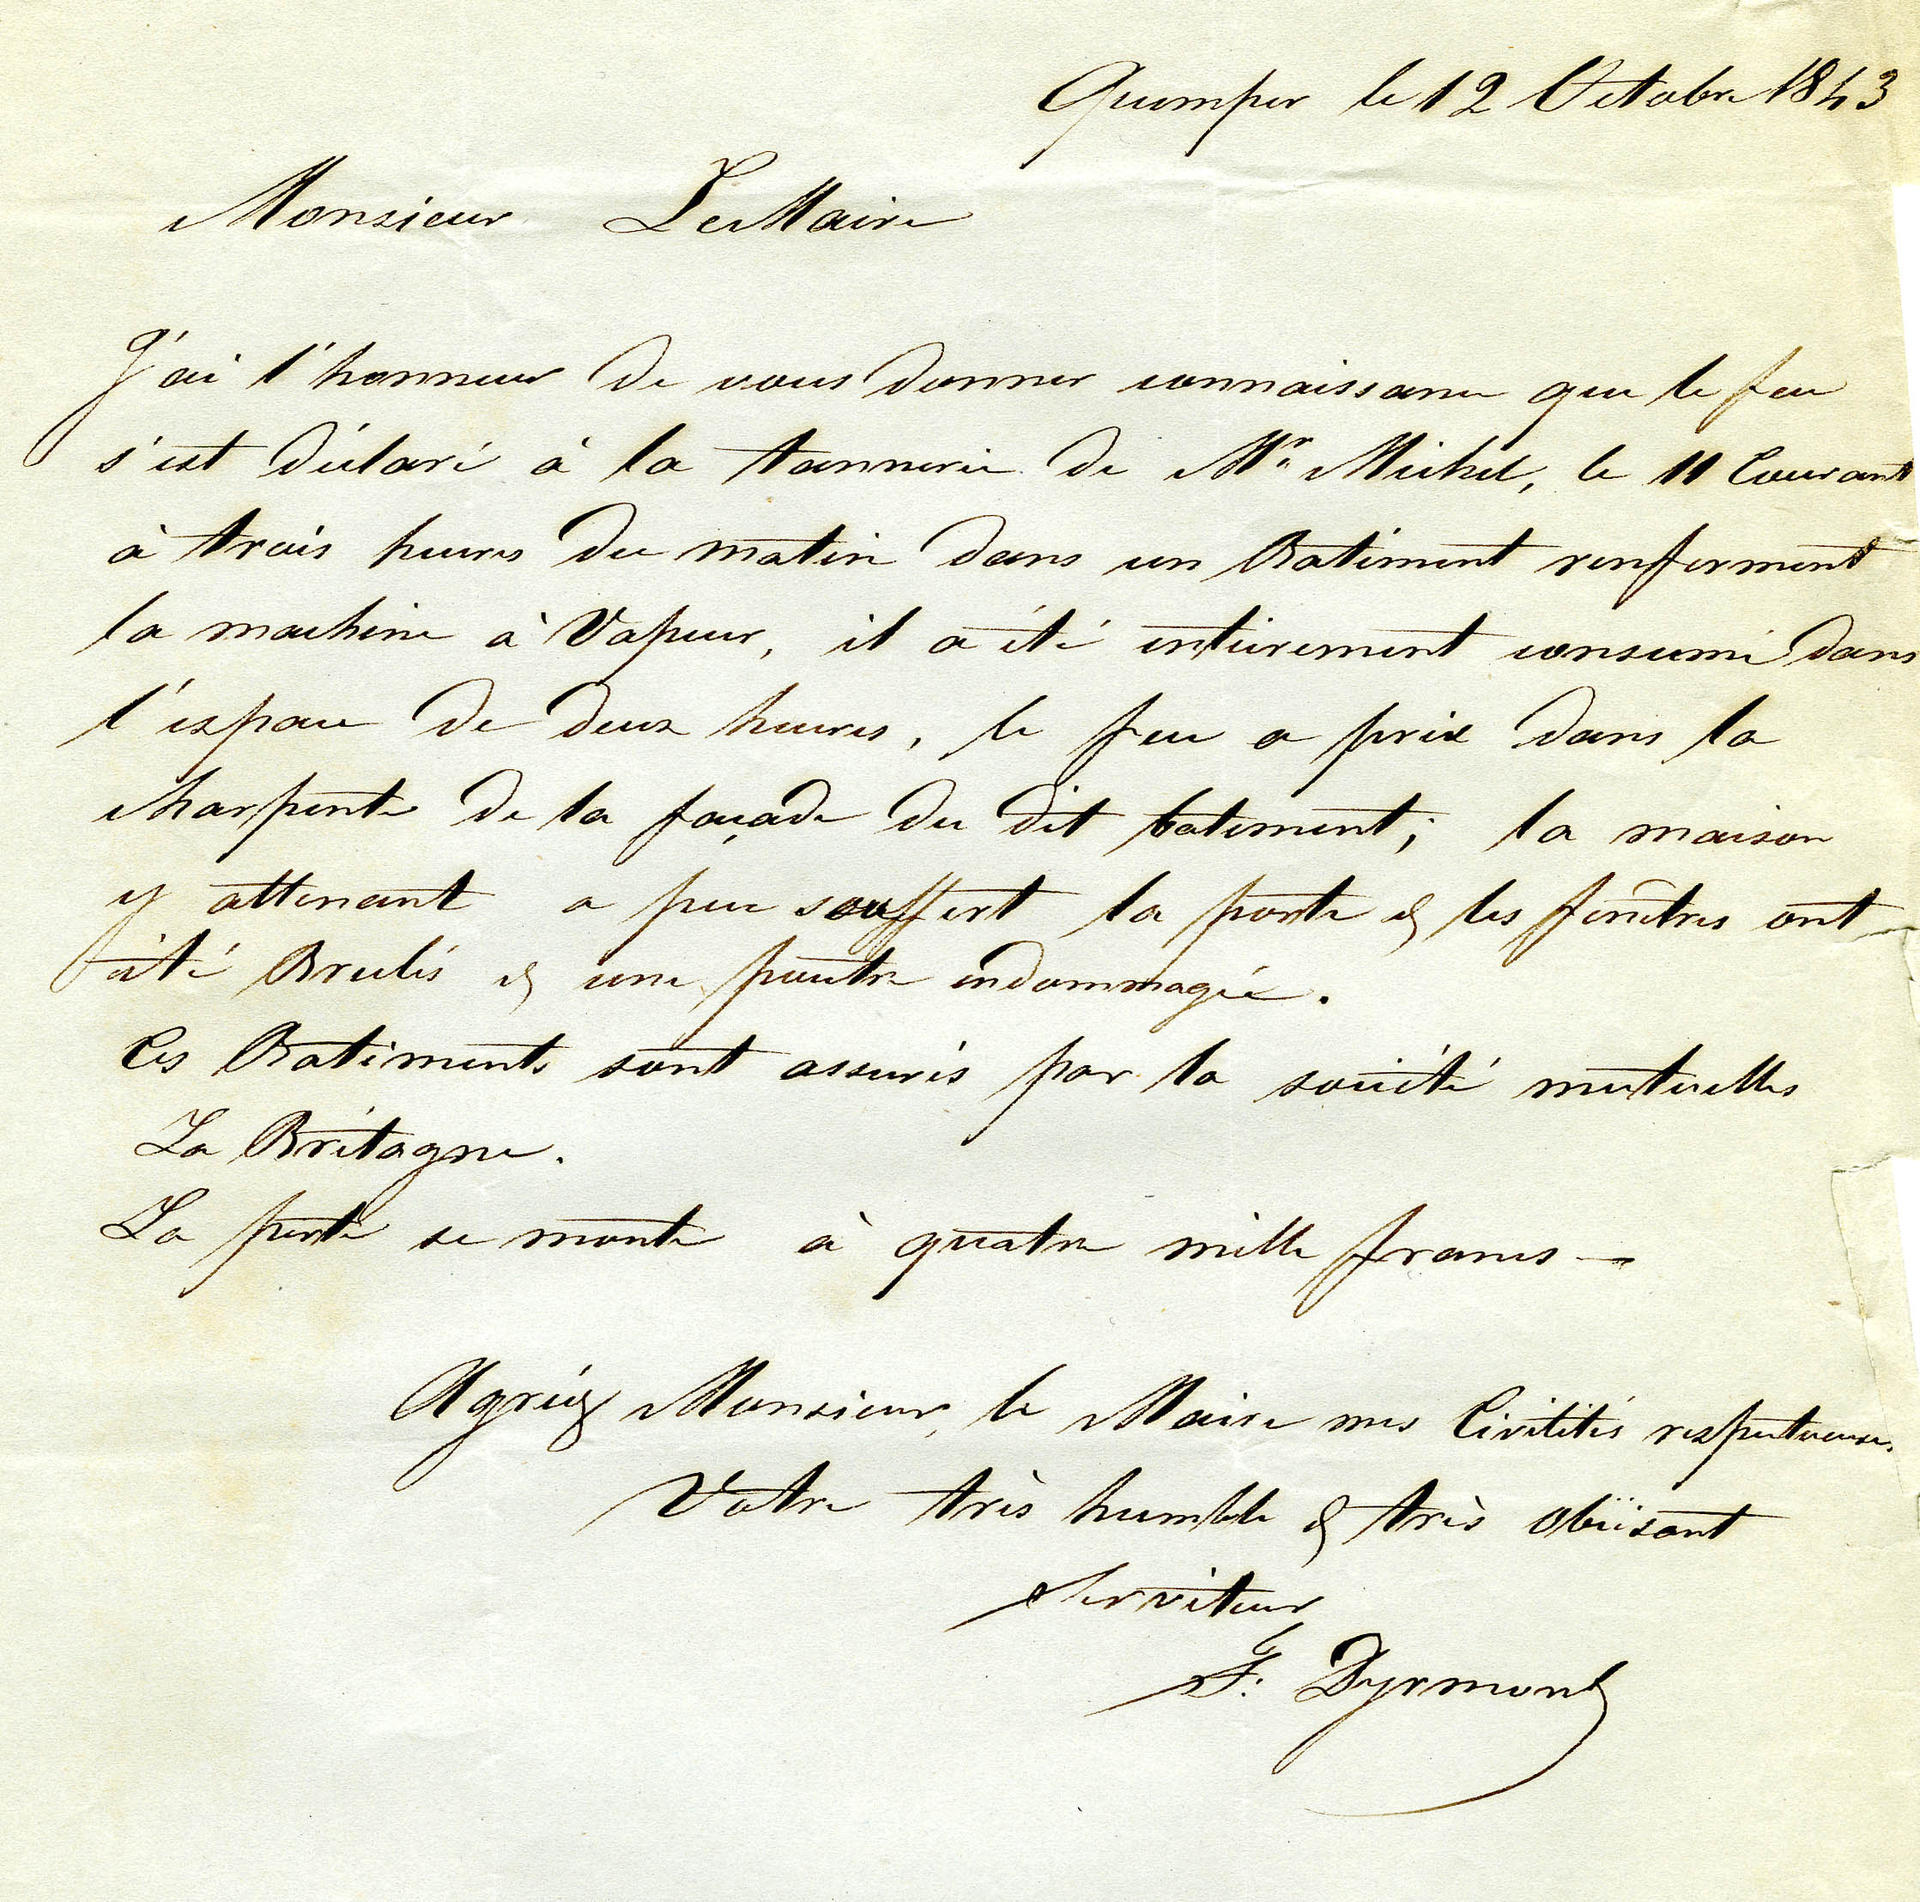 Quimper le 12 Octobre 1843
Monsieur Le Maire
J'ai l'honneur de vous donner connaissance que le feu
s'est déclaré à la tannerie de Mr Michel, le 11 Courant
à trois heures du matin dans un Batiment renferment
la machine à Vapeur, il a été entièrement consumé dans
l'espace de deux heures, le feu a prix dans la
charpente de la façade du dit batiment; la maison
y attenant a peu souffert la porte & les fenêtres ont
été Brulés & une poutre endommagée.
Ces Batiments sont assurés par la société mutuelles
La Brétagne.
La perte se monte à quatre mille francs —
Agréez Monsieur, le Maire mes Civilités respectueuses.
Votre très humble & très obëisant
Serviteur
F. Dyrmont